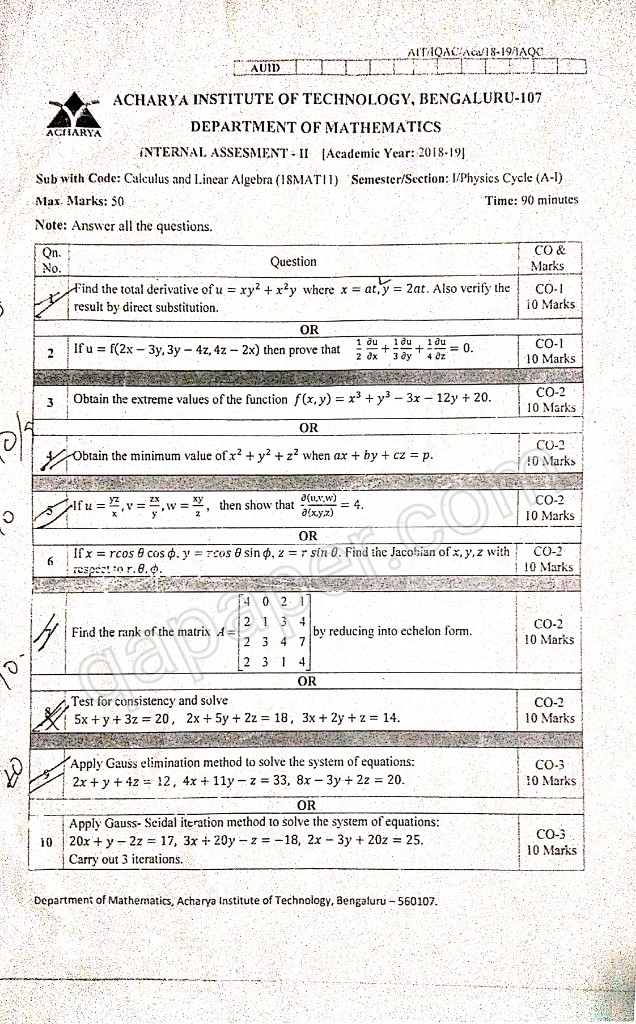 AIT/IQAC/Aca/18-19/IAQC
AUID
ACHARYA
ACHARYA INSTITUTE OF TECHNOLOGY, BENGALURU-107
DEPARTMENT OF MATHEMATICS
INTERNAL ASSESMENT - II [Academic Year: 2018-19]
Sub with Code: Calculus and Linear Algebra (18MAT11) Semester/Section: I/Physics Cycle (A-I)
Max. Marks: 50 Time: 90 minutes
Note: Answer all the questions.
Qn. No. Question CO & Marks
1 Find the total derivative of u = xy² + x²y where x = at, y = 2at. Also verify the CO-1
result by direct substitution. 10 Marks
OR
2 If u = f(2x − 3y, 3y − 4z, 4z − 2x) then prove that 1/2 ∂u/∂x + 1/3 ∂u/∂y + 1/4 ∂u/∂z = 0. CO-1
10 Marks
3 Obtain the extreme values of the function f(x, y) = x³ + y³ − 3x − 12y + 20. CO-2
10 Marks
OR
4 Obtain the minimum value of x² + y² + z² when ax + by + cz = p. CO-2
10 Marks
5 If u = yz/x, v = zx/y, w = xy/z, then show that ∂(u,v,w)/∂(x,y,z) = 4. CO-2
10 Marks
OR
6 If x = rcos θ cos ϕ, y = rcos θ sin ϕ, z = r sin θ. Find the Jacobian of x, y, z with CO-2
respect to r, θ, ϕ. 10 Marks
4 0 2 1
2 1 3 4
7 Find the rank of the matrix A = by reducing into echelon form. CO-2
2 3 4 7 10 Marks
2 3 1 4
OR
8 Test for consistency and solve CO-2
5x + y + 3z = 20 , 2x + 5y + 2z = 18 , 3x + 2y + z = 14. 10 Marks
9 Apply Gauss elimination method to solve the system of equations: CO-3
2x + y + 4z = 12 , 4x + 11y − z = 33, 8x − 3y + 2z = 20. 10 Marks
OR
Apply Gauss- Seidal iteration method to solve the system of equations:
10 20x + y − 2z = 17, 3x + 20y − z = −18, 2x − 3y + 20z = 25. CO-3
Carry out 3 iterations. 10 Marks
Department of Mathematics, Acharya Institute of Technology, Bengaluru – 560107.
qapaper.com
10
10